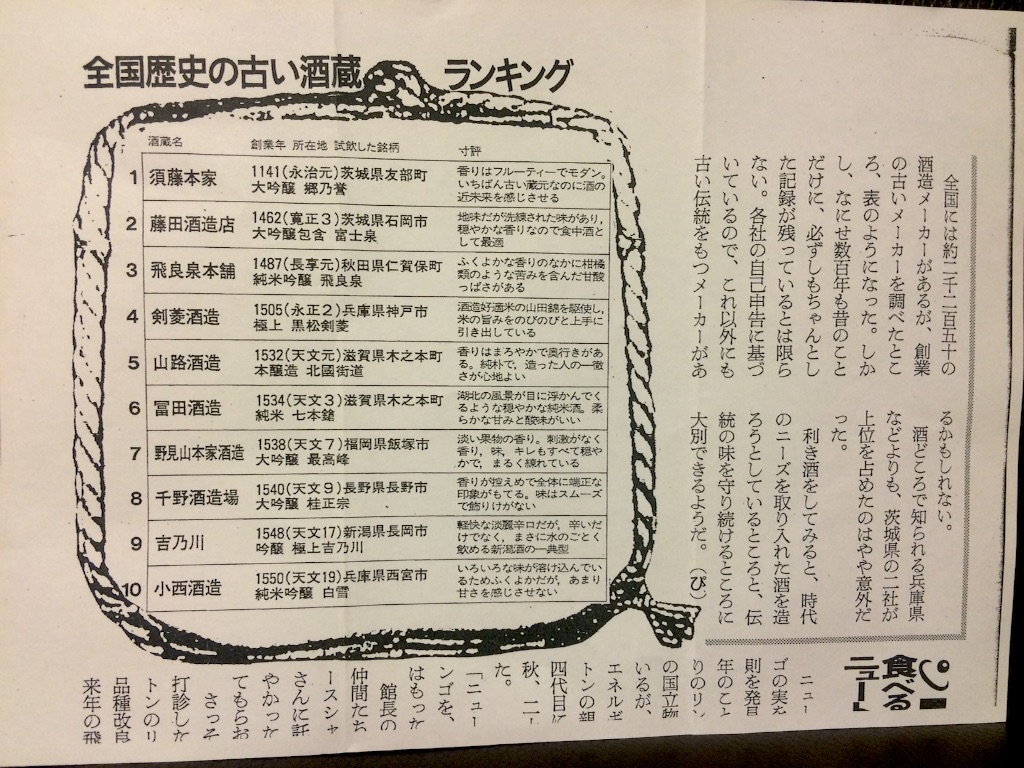 全国歴史の古い酒蔵 ランキング
酒蔵名 創業年 所在地 試飲した銘柄 寸評
1 須藤本家 1141(永治元)茨城県友部町 大吟醸 郷乃誉
香りはフルーティーでモダン。
いちばん古い蔵元なのに酒の
近未来を感じさせる
2 藤田酒造店 1462(寛正3)茨城県石岡市 大吟醸包含 富士泉
地味だが洗練された味があり,
穏やかな香りなので食中酒と
して最適
3 飛良泉本舗 1487(長享元)秋田県仁賀保町 純米吟醸 飛良泉
ふくよかな香りのなかに柑橘
類のような苦みを含んだ甘酸
っぱさがある
4 剣菱酒造 1505(永正2)兵庫県神戸市 極上 黒松剣菱
酒造好適米の山田錦を駆使し,
米の旨みをのびのびと上手に
引き出している
5 山路酒造 1532(天文元)滋賀県木之本町 本醸造 北國街道
香りはまろやかで奥行きがあ
る。純朴で,造った人の一徹
さが心地よい
6 冨田酒造 1534(天文3)滋賀県木之本町 純米 七本鎗
湖北の風景が目に浮かんでく
るような穏やかな純米酒。柔
らかな甘みと酸味がいい
7 野見山本家酒造 1538(天文7)福岡県飯塚市 大吟醸 最高峰
淡い果物の香り。刺激がなく
香り,味,キレもすべて穏や
かで,まるく練れている
8 千野酒造場 1540(天文9)長野県長野市 大吟醸 桂正宗
香りが控えめで全体に端正な
印象がもてる。味はスムーズ
で飾りけがない
9 吉乃川 1548(天文17)新潟県長岡市 吟醸 極上吉乃川
軽快な淡麗辛口だが,辛いだ
けでなく,まさに水のごとく
飲める新潟酒の一典型
10 小西酒造 1550(天文19)兵庫県西宮市 純米吟醸 白雪
いろいろな味が溶け込んでい
るためふくよかだが,あまり
甘さを感じさせない
全国には約二千二百五十の
酒造メーカーがあるが、創業
の古いメーカーを調べたとこ
ろ、表のようになった。しか
し、なにせ数百年も昔のこと
だけに、必ずしもちゃんとし
た記録が残っているとは限ら
ない。各社の自己申告に基づ
いているので、これ以外にも
古い伝統をもつメーカーがあ
るかもしれない。
酒どころで知られる兵庫県
などよりも、茨城県の二社が
上位を占めたのはやや意外だ
った。
利き酒をしてみると、時代
のニーズを取り入れた酒を造
ろうとしているところと、伝
統の味を守り続けるところに
大別できるようだ。 (ぴ)
食べる
ニュー
ニュー
ゴの実を
則を発見
年のこと
りのリン
の国立物
いるが、
エネルギ
トンの親
四代目に
秋、二
た。
「ニュー
ンゴを、
はもった
館長の
仲間たち
ースシャ
さんに託
やかった
てもらお
さっそ
打診した
トンのリ
品種改良
来年の飛